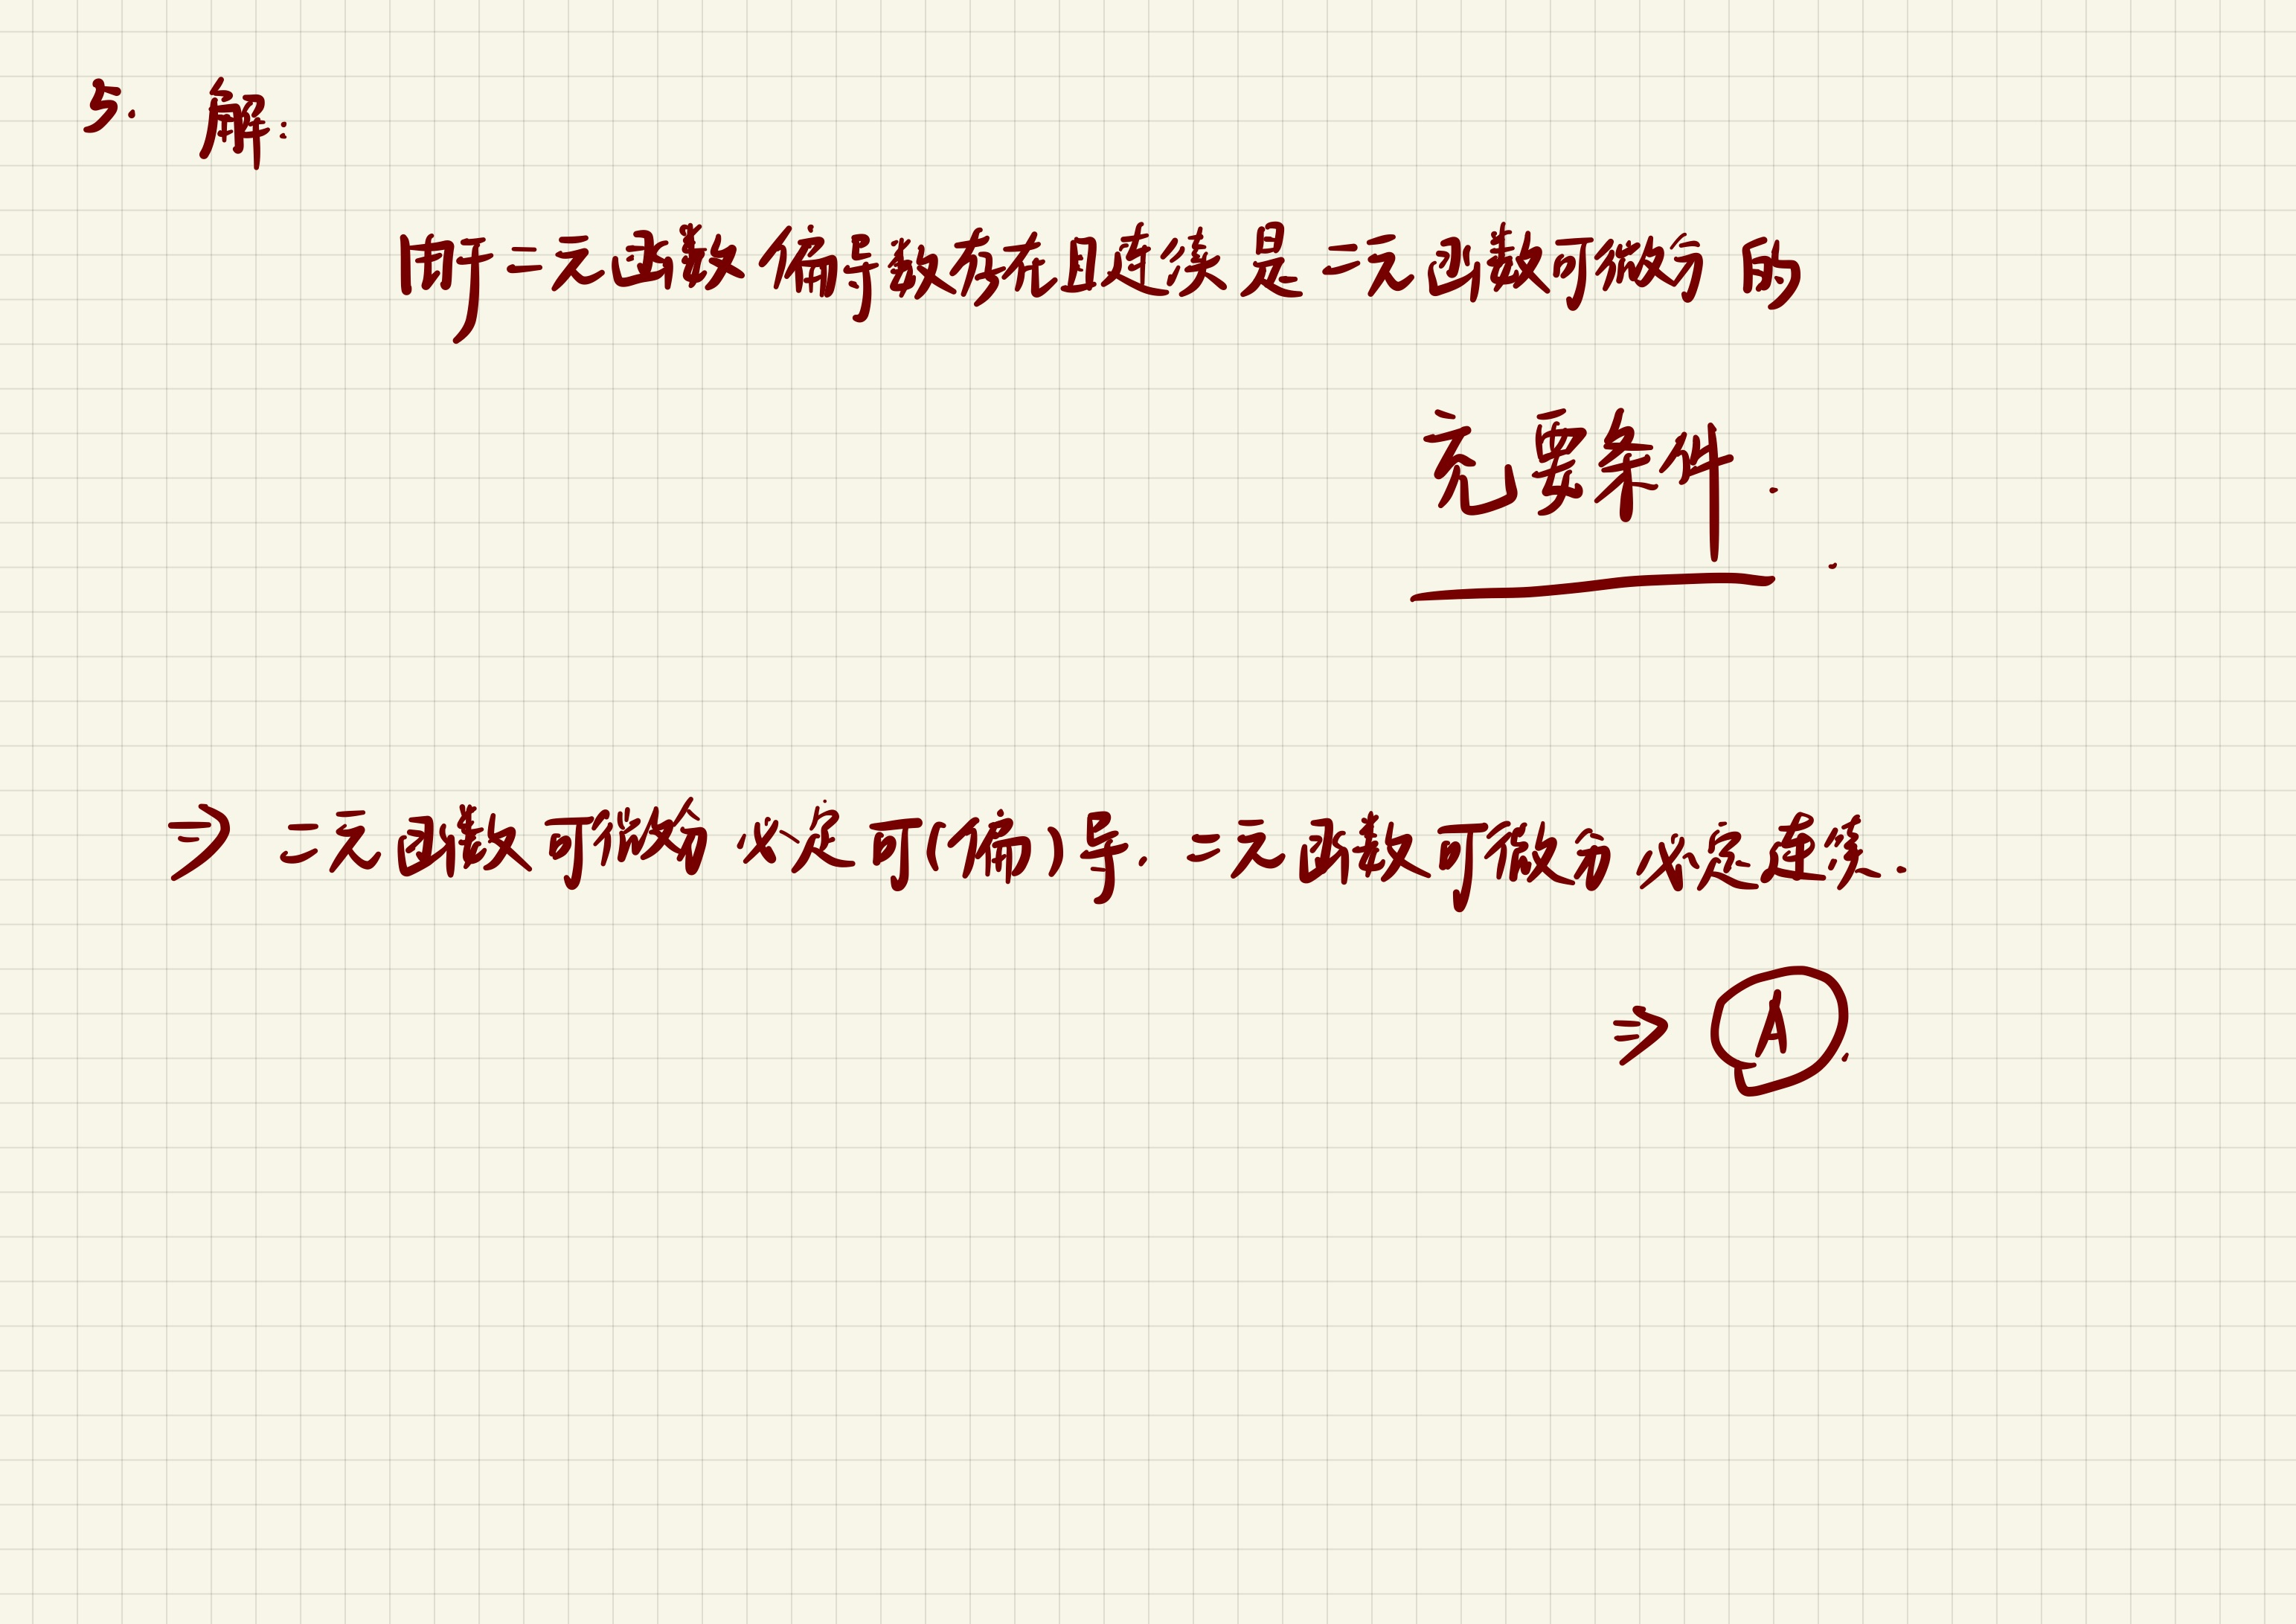 5. 解:
由于二元函数偏导数存在且连续是二元函数可微分的
充要条件.
⇒ 二元函数可微分必定可(偏)导. 二元函数可微分必定连续.
⇒ A.